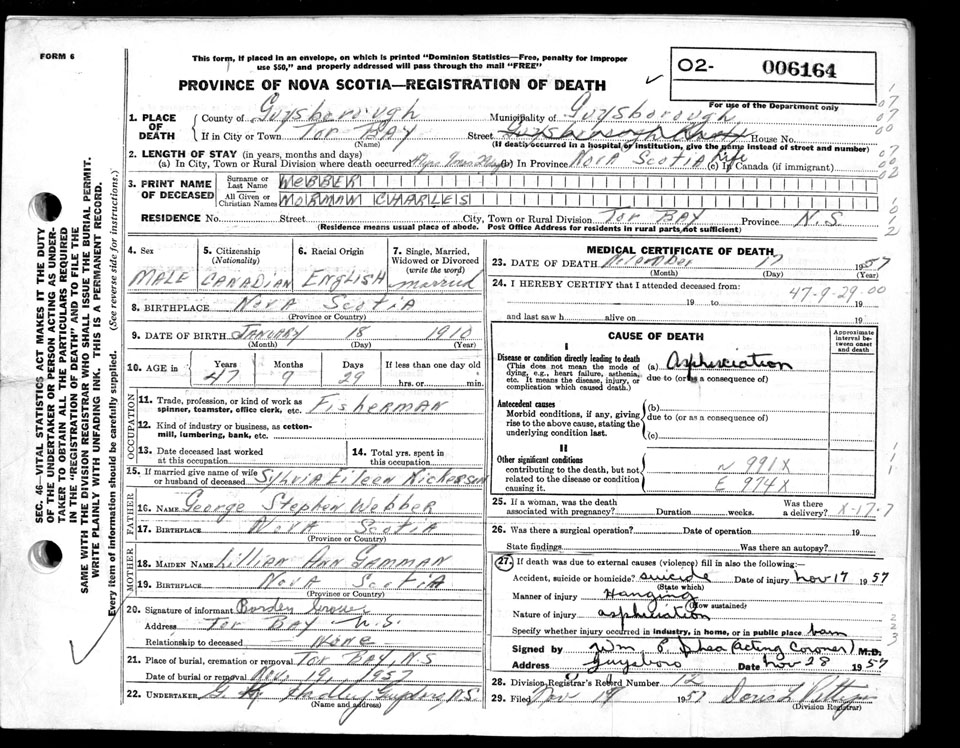 FORM 6
This form, if placed in an envelope, on which is printed "Dominion Statistics—Free, penalty for improper
use $50," and properly addressed will pass through the mail "FREE"
PROVINCE OF NOVA SCOTIA—REGISTRATION OF DEATH
O2- 006164
For use of the Department only
1. PLACE OF DEATH
County of Guysborough Municipality of Guysborough
If in City or Town Tor BAY Street House No.
(Name) (If death occurred in a hospital or institution, give the name instead of street and number)
2. LENGTH OF STAY (in years, months and days)
(a) In City, Town or Rural Division where death occurred (b) In Province Nova Scotia (c) In Canada (if immigrant) Life
3. PRINT NAME OF DECEASED
Surname or Last Name WEBBER
All Given or Christian Names NORMAN CHARLES
RESIDENCE No. Street City, Town or Rural Division Tor BAY Province N.S.
(Residence means usual place of abode. Post Office Address for residents in rural parts, not sufficient)
4. Sex
MALE
5. Citizenship (Nationality)
CANADIAN
6. Racial Origin
English
7. Single, Married, Widowed or Divorced (write the word)
married
8. BIRTHPLACE Nova Scotia
(Province or Country)
9. DATE OF BIRTH JANUARY 18 1910
(Month) (Day) (Year)
10. AGE in Years Months Days If less than one day old
47 9 29 hrs. or min.
OCCUPATION
11. Trade, profession, or kind of work as spinner, teamster, office clerk, etc. Fisherman
12. Kind of industry or business, as cotton-mill, lumbering, bank, etc.
13. Date deceased last worked at this occupation
14. Total yrs. spent in this occupation
15. If married give name of wife or husband of deceased Sylvia Eileen Nickerson
FATHER
16. NAME George Stephen Webber
17. BIRTHPLACE Nova Scotia
(Province or Country)
MOTHER
18. MAIDEN NAME Lillian Ann
19. BIRTHPLACE Nova Scotia
(Province or Country)
20. Signature of informant Borden
Address Tor BAY N.S.
Relationship to deceased None
21. Place of burial, cremation or removal Tor BAY, N.S
Date of burial or removal Nov. 19, 1957
22. UNDERTAKER
(Name and address)
MEDICAL CERTIFICATE OF DEATH
23. DATE OF DEATH November 17 1957
(Month) (Day) (Year)
24. I HEREBY CERTIFY that I attended deceased from:
47-9-29-00
19 to 19
and last saw h alive on 19
CAUSE OF DEATH
Approximate interval between onset and death
I
Disease or condition directly leading to death
(This does not mean the mode of dying, e.g., heart failure, asthenia, etc. It means the disease, injury, or complication which caused death.)
(a) Asphixiation
due to (or as a consequence of)
Antecedent causes
Morbid conditions, if any, giving rise to the above cause, stating the underlying condition last.
(b)
due to (or as a consequence of)
(c)
II
Other significant conditions
contributing to the death, but not related to the disease or condition causing it.
N 991X
E 974X
25. If a woman, was the death associated with pregnancy? Duration weeks. Was there a delivery? X-17-7
26. Was there a surgical operation? Date of operation 19
State findings Was there an autopsy?
27. If death was due to external causes (violence) fill in also the following:—
Accident, suicide or homicide? suicide Date of injury Nov 17 1957
(State which)
Manner of injury Hanging
(How sustained)
Nature of injury asphixiation
Specify whether injury occurred in industry, in home, or in public place barn
Signed by Wm P. Shea (Acting Coroner) M.D.
Address Guysboro Date Nov 28 1957
28. Division Registrar's Record Number 12
29. Filed Nov 19 1957 Doris L
(Division Registrar)
SEC. 46-VITAL STATISTICS ACT MAKES IT THE DUTY
OF THE UNDERTAKER OR PERSON ACTING AS UNDER-
TAKER TO OBTAIN ALL THE PARTICULARS REQUIRED
IN THE "REGISTRATION OF DEATH" AND TO FILE THE
SAME WITH THE DIVISION REGISTRAR WHO SHALL ISSUE THE BURIAL PERMIT.
WRITE PLAINLY WITH UNFADING INK. THIS IS A PERMANENT RECORD.
Every item of information should be carefully supplied. (See reverse side for instructions.)